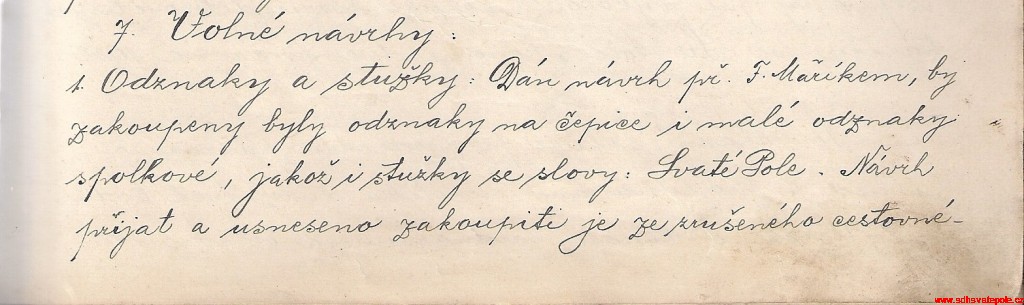 7. Volné návrhy:
1. Odznaky a stužky: Dán návrh př. F. Maříkem, by
zakoupeny byly odznaky na čepice i malé odznaky
spolkové, jakož i stužky se slovy: Svaté Pole. Návrh
přijat a usneseno zakoupiti je ze zrušeného cestovné-
www.sdhsvatepole.cz